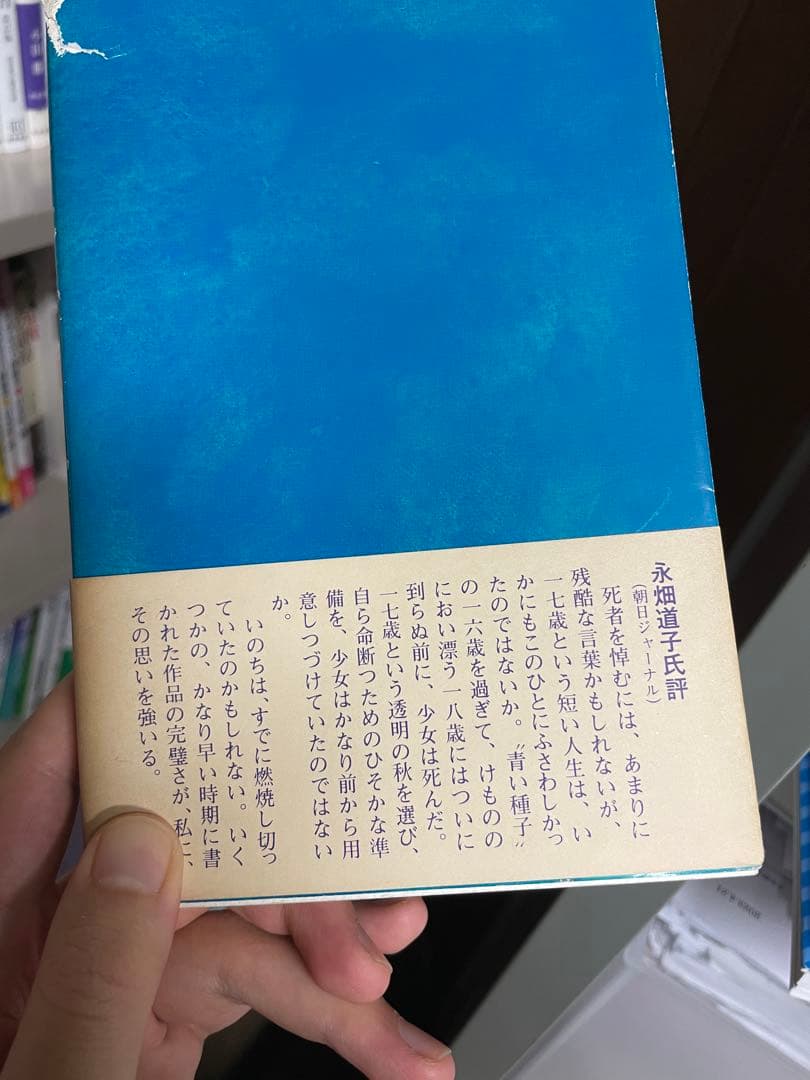 永畑道子氏評
（朝日ジャーナル）
死者を悼むには、あまりに
残酷な言葉かもしれないが、
一七歳という短い人生は、い
かにもこのひとにふさわしかっ
たのではないか。〝青い種子〟
の一六歳を過ぎて、けものの
におい漂う一八歳にはついに
到らぬ前に、少女は死んだ。
一七歳という透明の秋を選び、
自ら命断つためのひそかな準
備を、少女はかなり前から用
意しつづけていたのではない
か。
いのちは、すでに燃焼し切っ
ていたのかもしれない。いく
つかの、かなり早い時期に書
かれた作品の完璧さが、私に、
その思いを強いる。